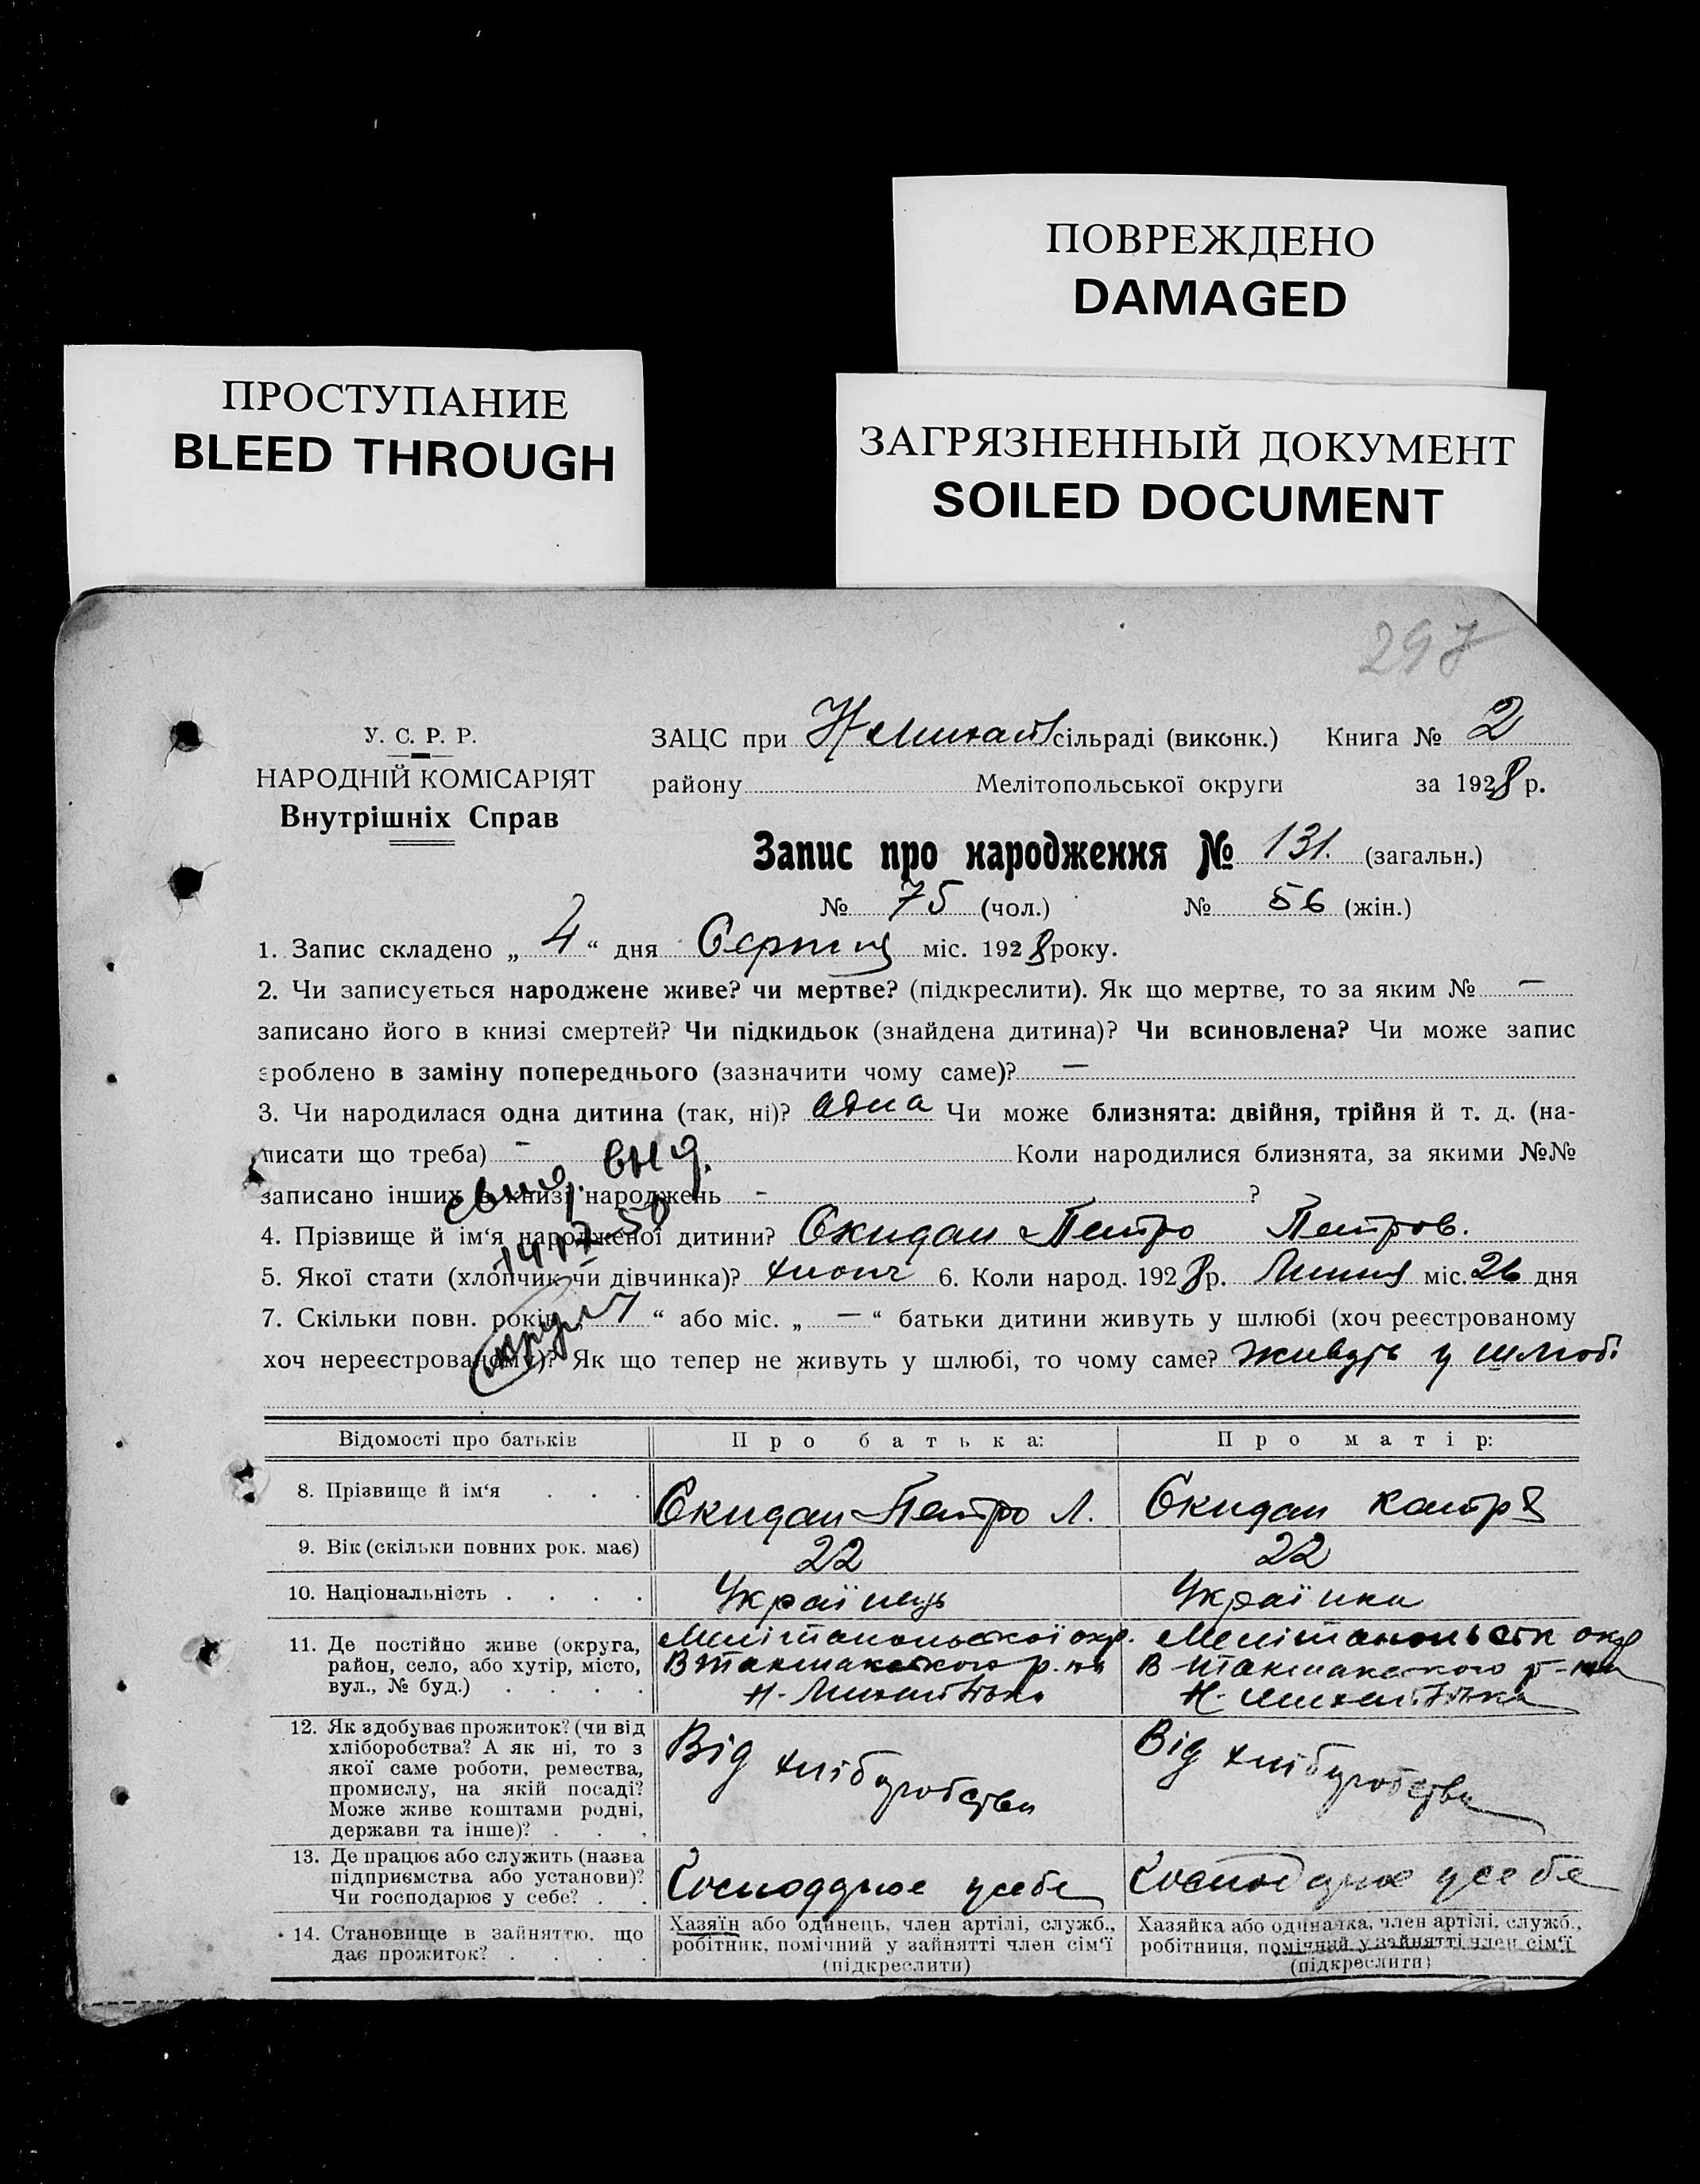 ПОВРЕЖДЕНО
DAMAGED
ПРОСТУПАНИЕ
BLEED THROUGH
ЗАГРЯЗНЕННЫЙ ДОКУМЕНТ
SOILED DOCUMENT
297
У. С. Р. Р.
НАРОДНІЙ КОМІСАРІЯТ
Внутрішніх Справ
ЗАЦС при Н Михайл сільраді (виконк.) Книга № 2
району Мелітопольської округи за 1928 р.
Запис про народження № 131. (загальн.)
№ 75 (чол.) № 56 (жін.)
1. Запис складено „ 4 “ дня Серпня міс. 1928 року.
2. Чи записується народжене живе? чи мертве? (підкреслити). Як що мертве, то за яким № —
записано його в книзі смертей? Чи підкидьок (знайдена дитина)? Чи всиновлена? Чи може запис
зроблено в заміну попереднього (зазначити чому саме)? —
3. Чи народилася одна дитина (так, ні)? одна Чи може близнята: двійня, трійня й т. д. (на-
писати що треба) - Коли народилися близнята, за якими №№
записано інших в книзі народжень - ?
4. Прізвище й ім‘я народженої дитини? Скидан Петро Петров.
5. Якої стати (хлопчик чи дівчинка)? хлопч 6. Коли народ. 1928 р. Липня міс. 26 дня
7. Скільки повн. років „ 1 “ або міс. „ — “ батьки дитини живуть у шлюбі (хоч реєстрованому
хоч нереєстрованому)? Як що тепер не живуть у шлюбі, то чому саме? живуть у шлюбі
Відомості про батьків Про батька: Про матір:
8. Прізвище й ім‘я . . . Скидан Петро Л. Скидан
9. Вік (скільки повних рок. має) 22 22
10. Національність . . . . Українець Українка
11. Де постійно живе (округа, район, село, або хутір, місто, вул., № буд.) . . . .
Мелітопольської окр.
В Токмакського р-на
Н-Михайлівка
Мелітопольськ окр
В Токмакского р-на
Н-Михайлівка
12. Як здобуває прожиток? (чи від хліборобства? А як ні, то з якої саме роботи, ремества, промислу, на якій посаді? Може живе коштами родні, держави та інше)? . . .
Від хліборобства
Від хліборобства
13. Де працює або служить (назва підприємства або установи)? Чи господарює у себе? . .
Господарює у себе
Господарює у себе
14. Становище в зайняттю, що дає прожиток? . . . .
Хазяїн або одинець, член артілі, служб., робітник, помічний у зайнятті член сім‘ї (підкреслити)
Хазяйка або одиначка, член артілі, служб., робітниця, помічний у зайнятті член сім‘ї (підкреслити)